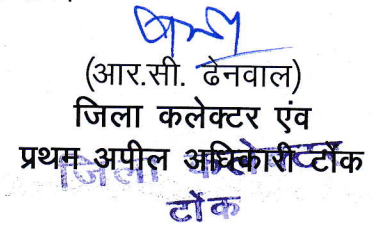 (आर.सी. ढेनवाल)
जिला कलेक्टर एंव
प्रथम अपील अधिकारी टोंक
जिला कलेक्टर
टोंक